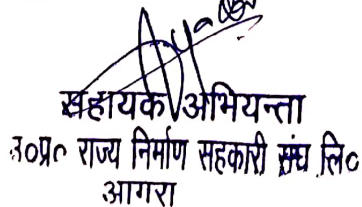 सहायक अभियन्ता
उ०प्र० राज्य निर्माण सहकारी संघ लि०
आगरा